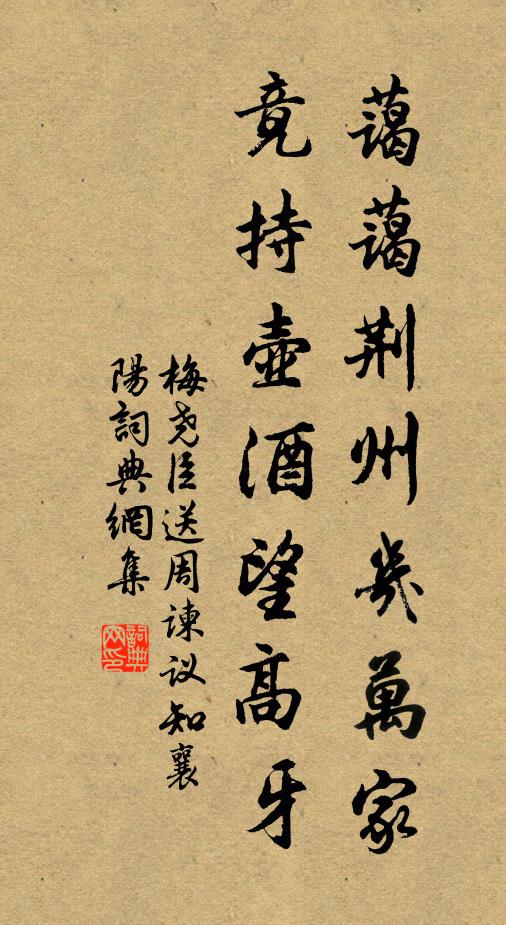 藹藹荆州幾萬家
竟持壺酒望高牙
梅尧臣送周谏议知襄
陽詞典網集
詞典网印